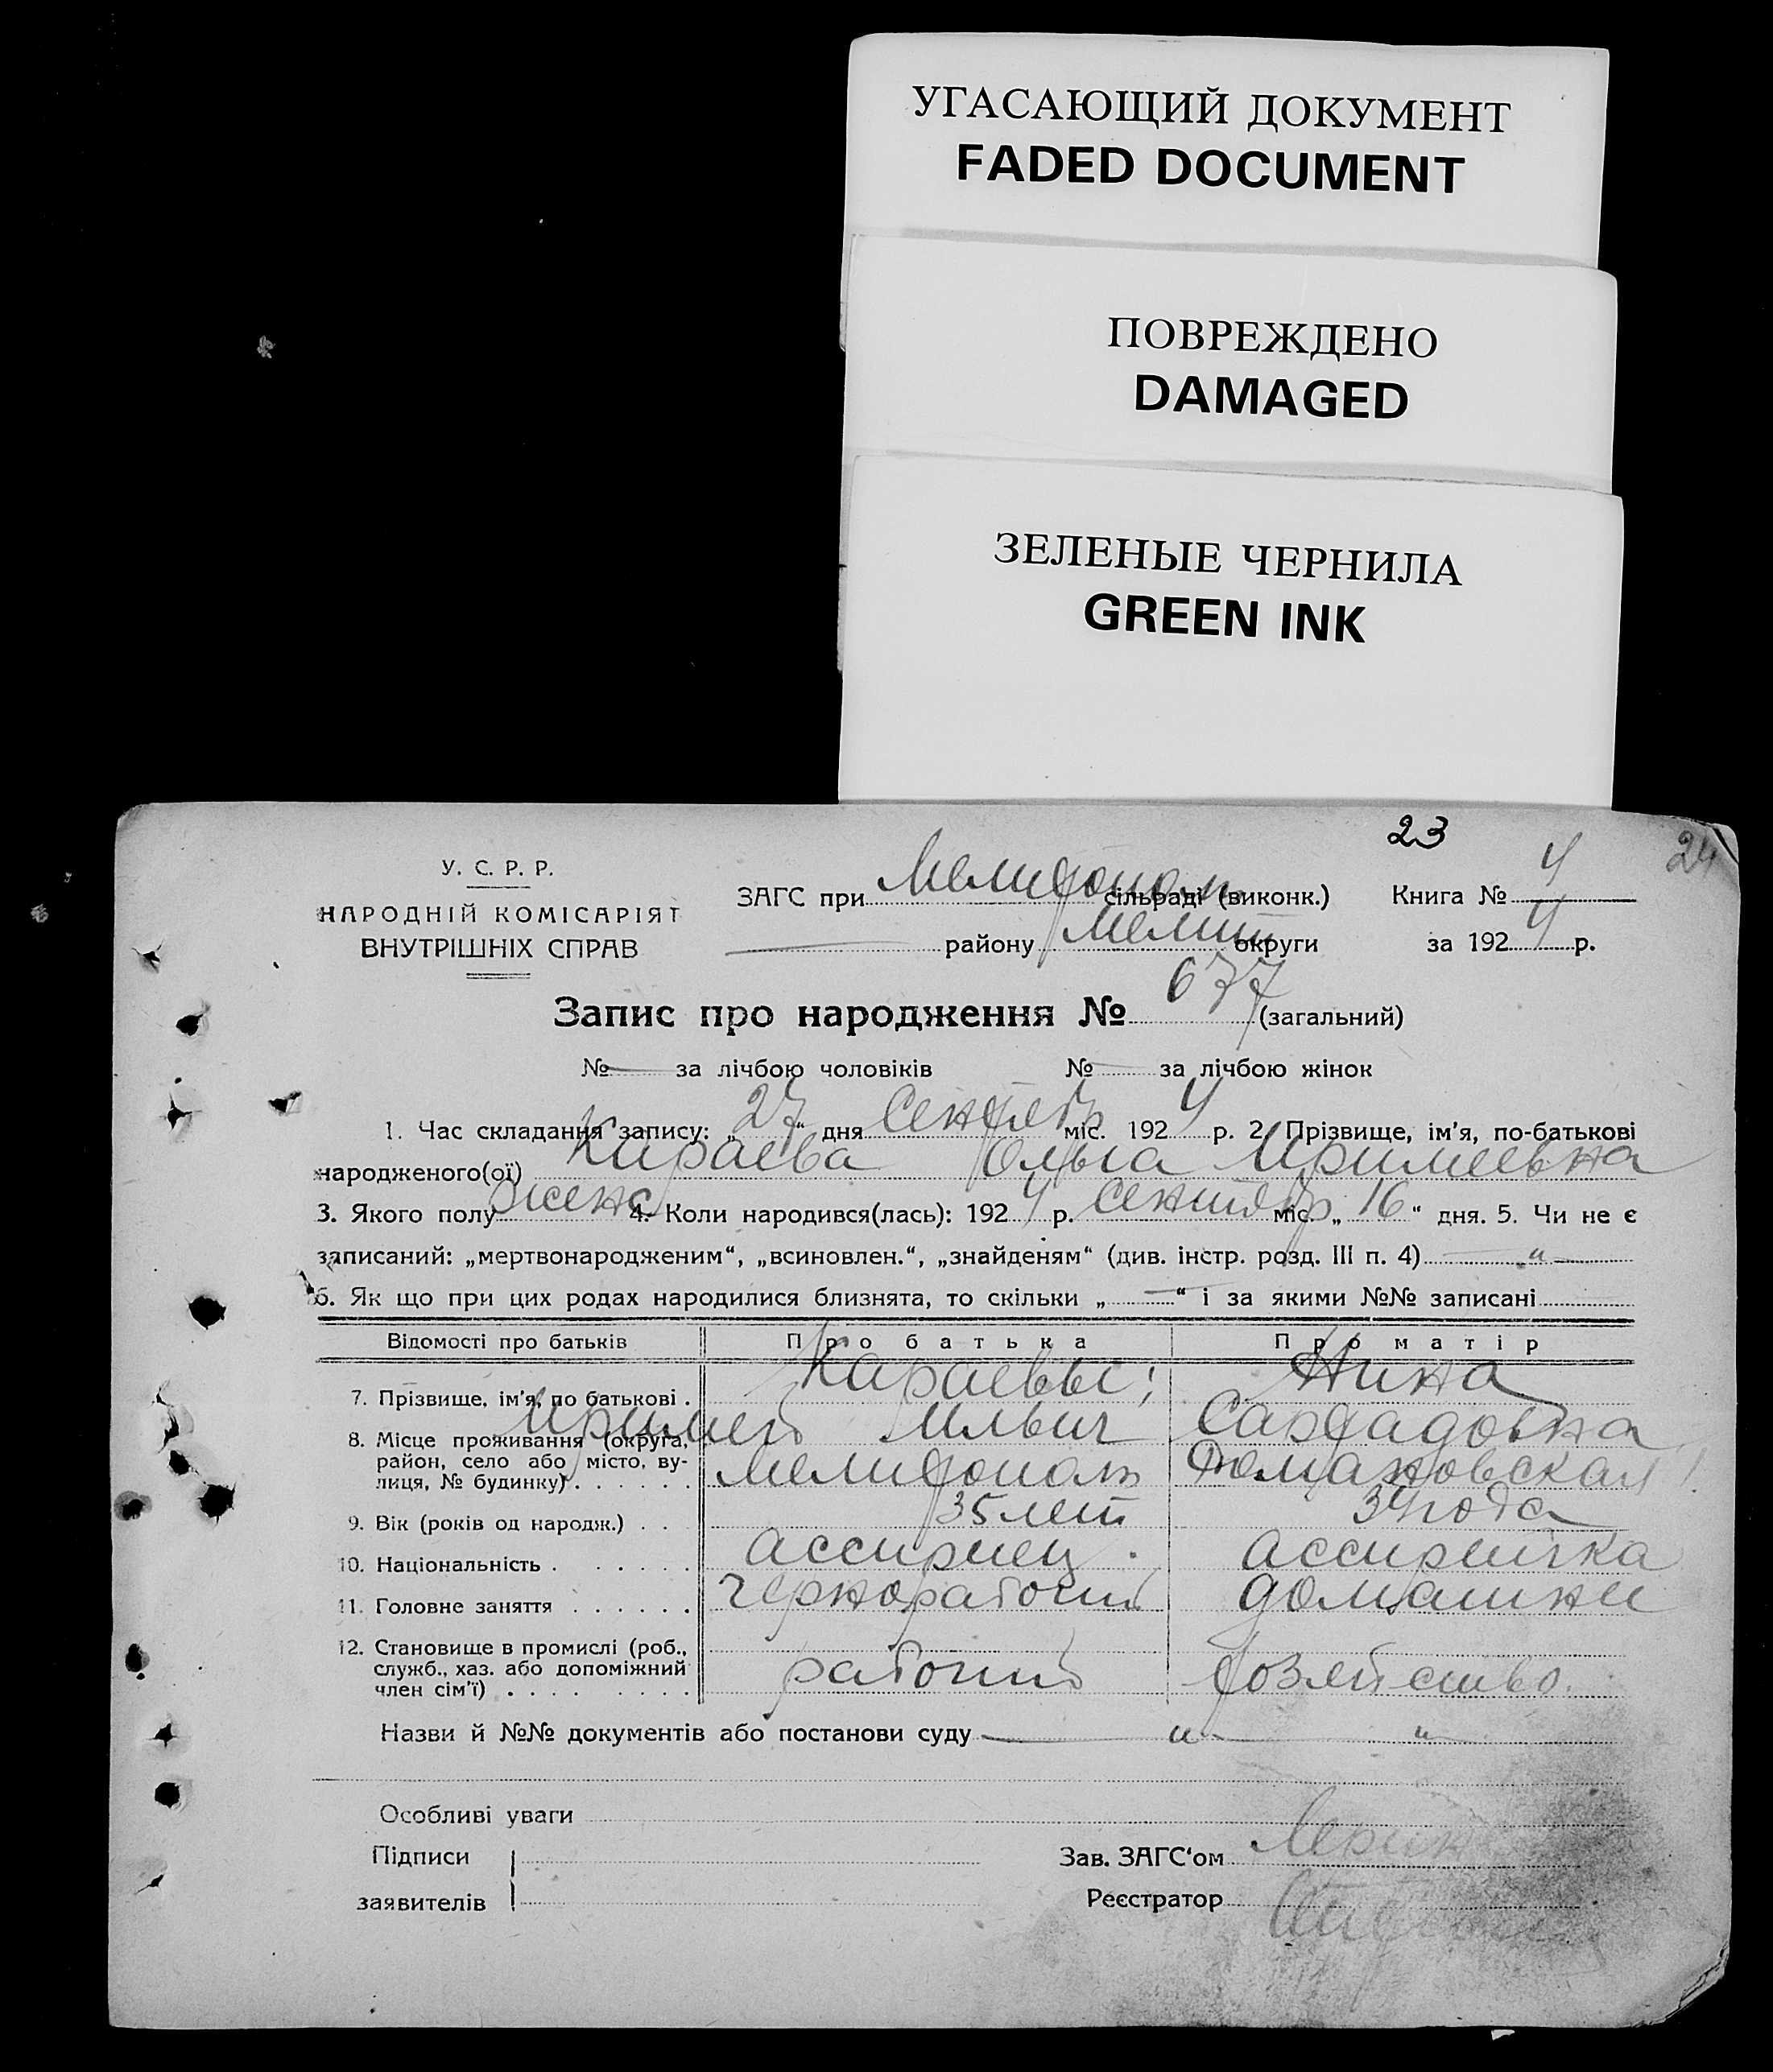 УГАСАЮЩИЙ ДОКУМЕНТ
FADED DOCUMENT
ПОВРЕЖДЕНО
DAMAGED
ЗЕЛЕНЫЕ ЧЕРНИЛА
GREEN INK
23 24
У. С. Р. Р.
НАРОДНІЙ КОМІСАРІЯТ
ВНУТРІШНІХ СПРАВ
ЗАГС при Мелитополь сільраді (виконк.) Книга № 4
району Мелит округи за 1924 р.
Запис про народження № 677 (загальний)
№ — за лічбою чоловіків № за лічбою жінок
1. Час складання запису: „27“ дня Сентябр міс. 1924 р. 2. Прізвище, ім'я, по-батькові
народженого(ої) Караева Ольга
3. Якого полу женс 4. Коли народився(лась): 1924 р. Сентябр міс. „16“ дня. 5. Чи не є
записаний: „мертвонародженим“, „всиновлен.“, „знайденям“ (див. інстр. розд. III п. 4) — „ —
6. Як що при цих родах народилися близнята, то скільки „—“ і за якими №№ записані
Відомості про батьків Про батька Про матір
7. Прізвище, ім'я, по батькові . Караевы; Нина
Ильич
8. Місце проживання (округа, район, село або місто, вулиця, № будинку) . . . . . . Мелитополь
9. Вік (років од народж.) . . 35 лет 34 года
10. Національність . . . . . . ассириец ассирийка
11. Головне заняття . . . . . . чернорабочий домашнее
12. Становище в промислі (роб., служб., хаз. або допоміжний член сім'ї) . . . . . . . . рабочий хозяйство.
Назви й №№ документів або постанови суду — „ — „ —
Особливі уваги
Підписи
заявителів
Зав. ЗАГС'ом
Реєстратор